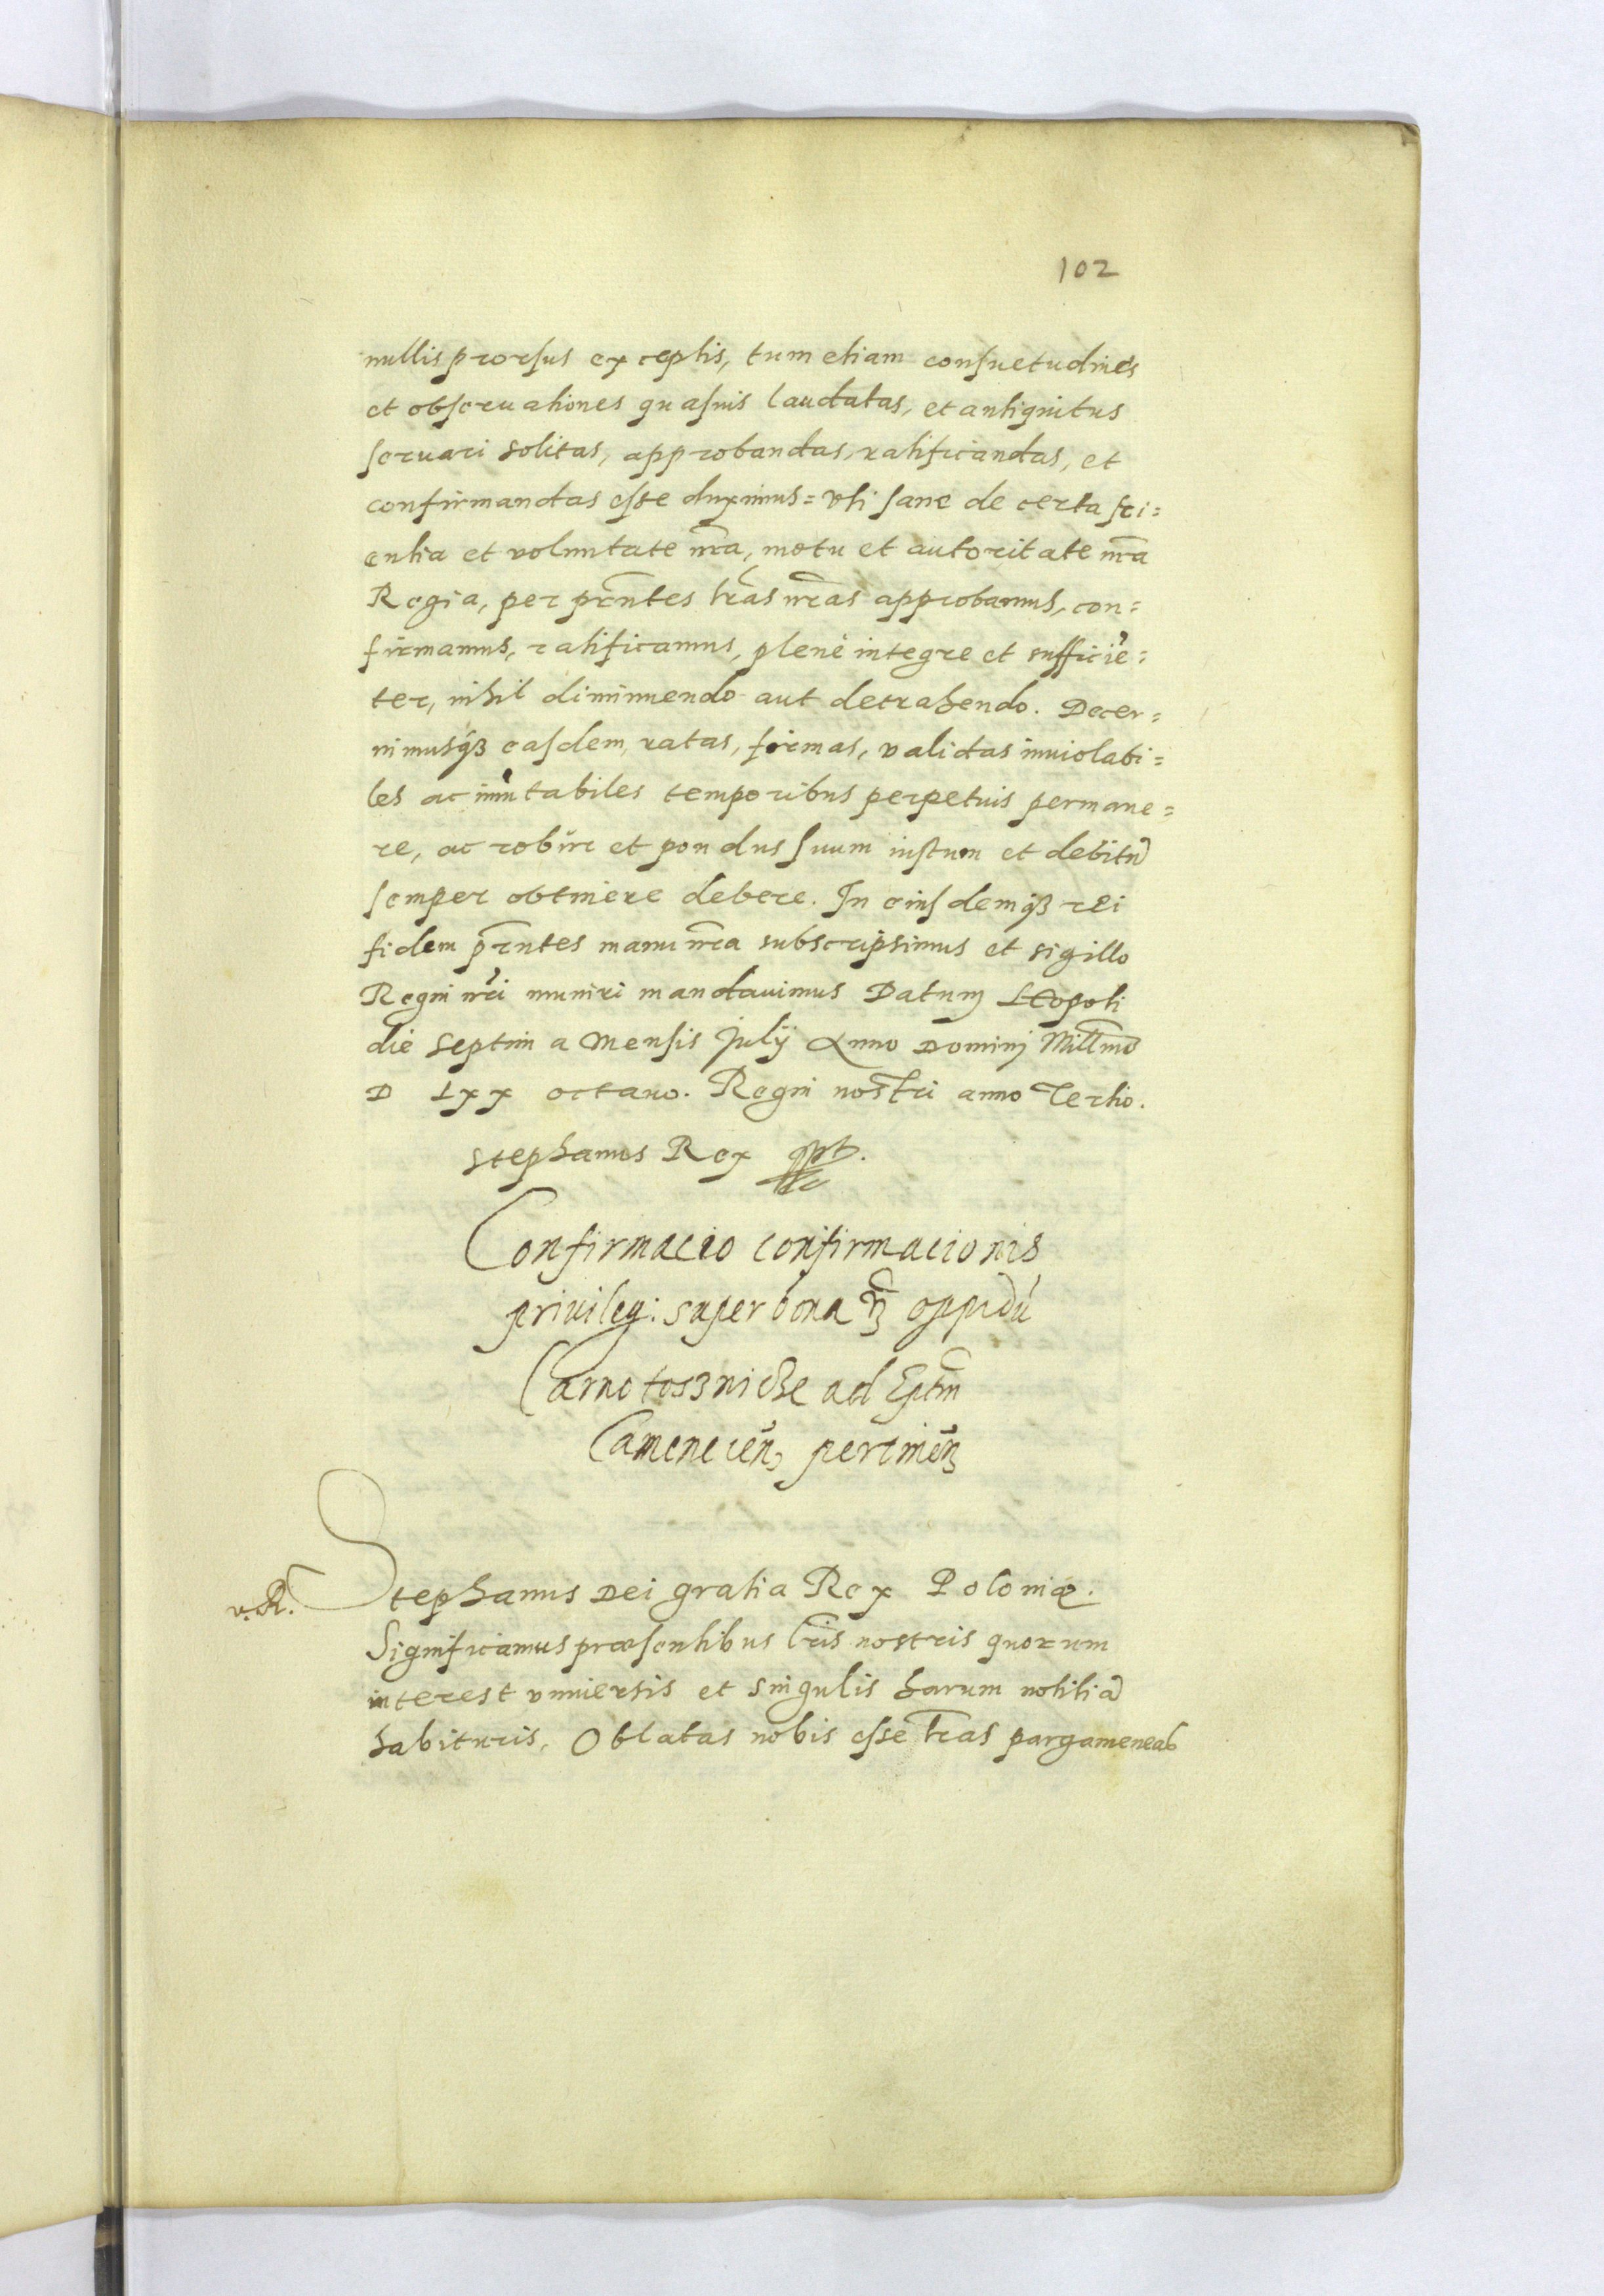 102
nullis prorsus exceptis, tum etiam consuetudines
et obseruationes quasuis laudatas, et antiquitus
seruari solitas, approbandas, ratificandas, et
confirmandas esse duximus = vti sane de certa sci=
entia et voluntate nr̃a, motu et autoritate nr̃a
Regia, per pñtes lr̃as nr̃as approbamus, con=
firmamus, ratificamus, plene integre et sufficiẽ=
ter, nihil diminuendo aut detrahendo. Decer=
nimusqȝ easdem, ratas, firmas, validas inuiolabi=
les ac im̃utabiles temporibus perpetuis permane=
re, ac robur et pondus suum iustum et debitũ
semper obtinere debere. In eiusdemqȝ rei
fidem pr̃ntes manu nr̃a subscripsimus et sigillo
Regni nr̃i muniri mandauimus Datum Leopoli
die Septima Mensis Julij Anno Dominj Mill̃mo
D Lxx octauo. Regni nostri anno Tertio.
Stephanus Rex
Confirmacio confirmacionis
priuileg: super bona oppidũ
Carnotosznicze ad Ep̃tm
Camenecen̄ pertinen̄
v. R.
Stephanus Dei gratia Rex Poloniæ.
Significamus præsentibus lr̃is nostris quorum
interest vniuersis et singulis harum notitiã
habituris, Oblatas nobis esse lr̃as pargameneas